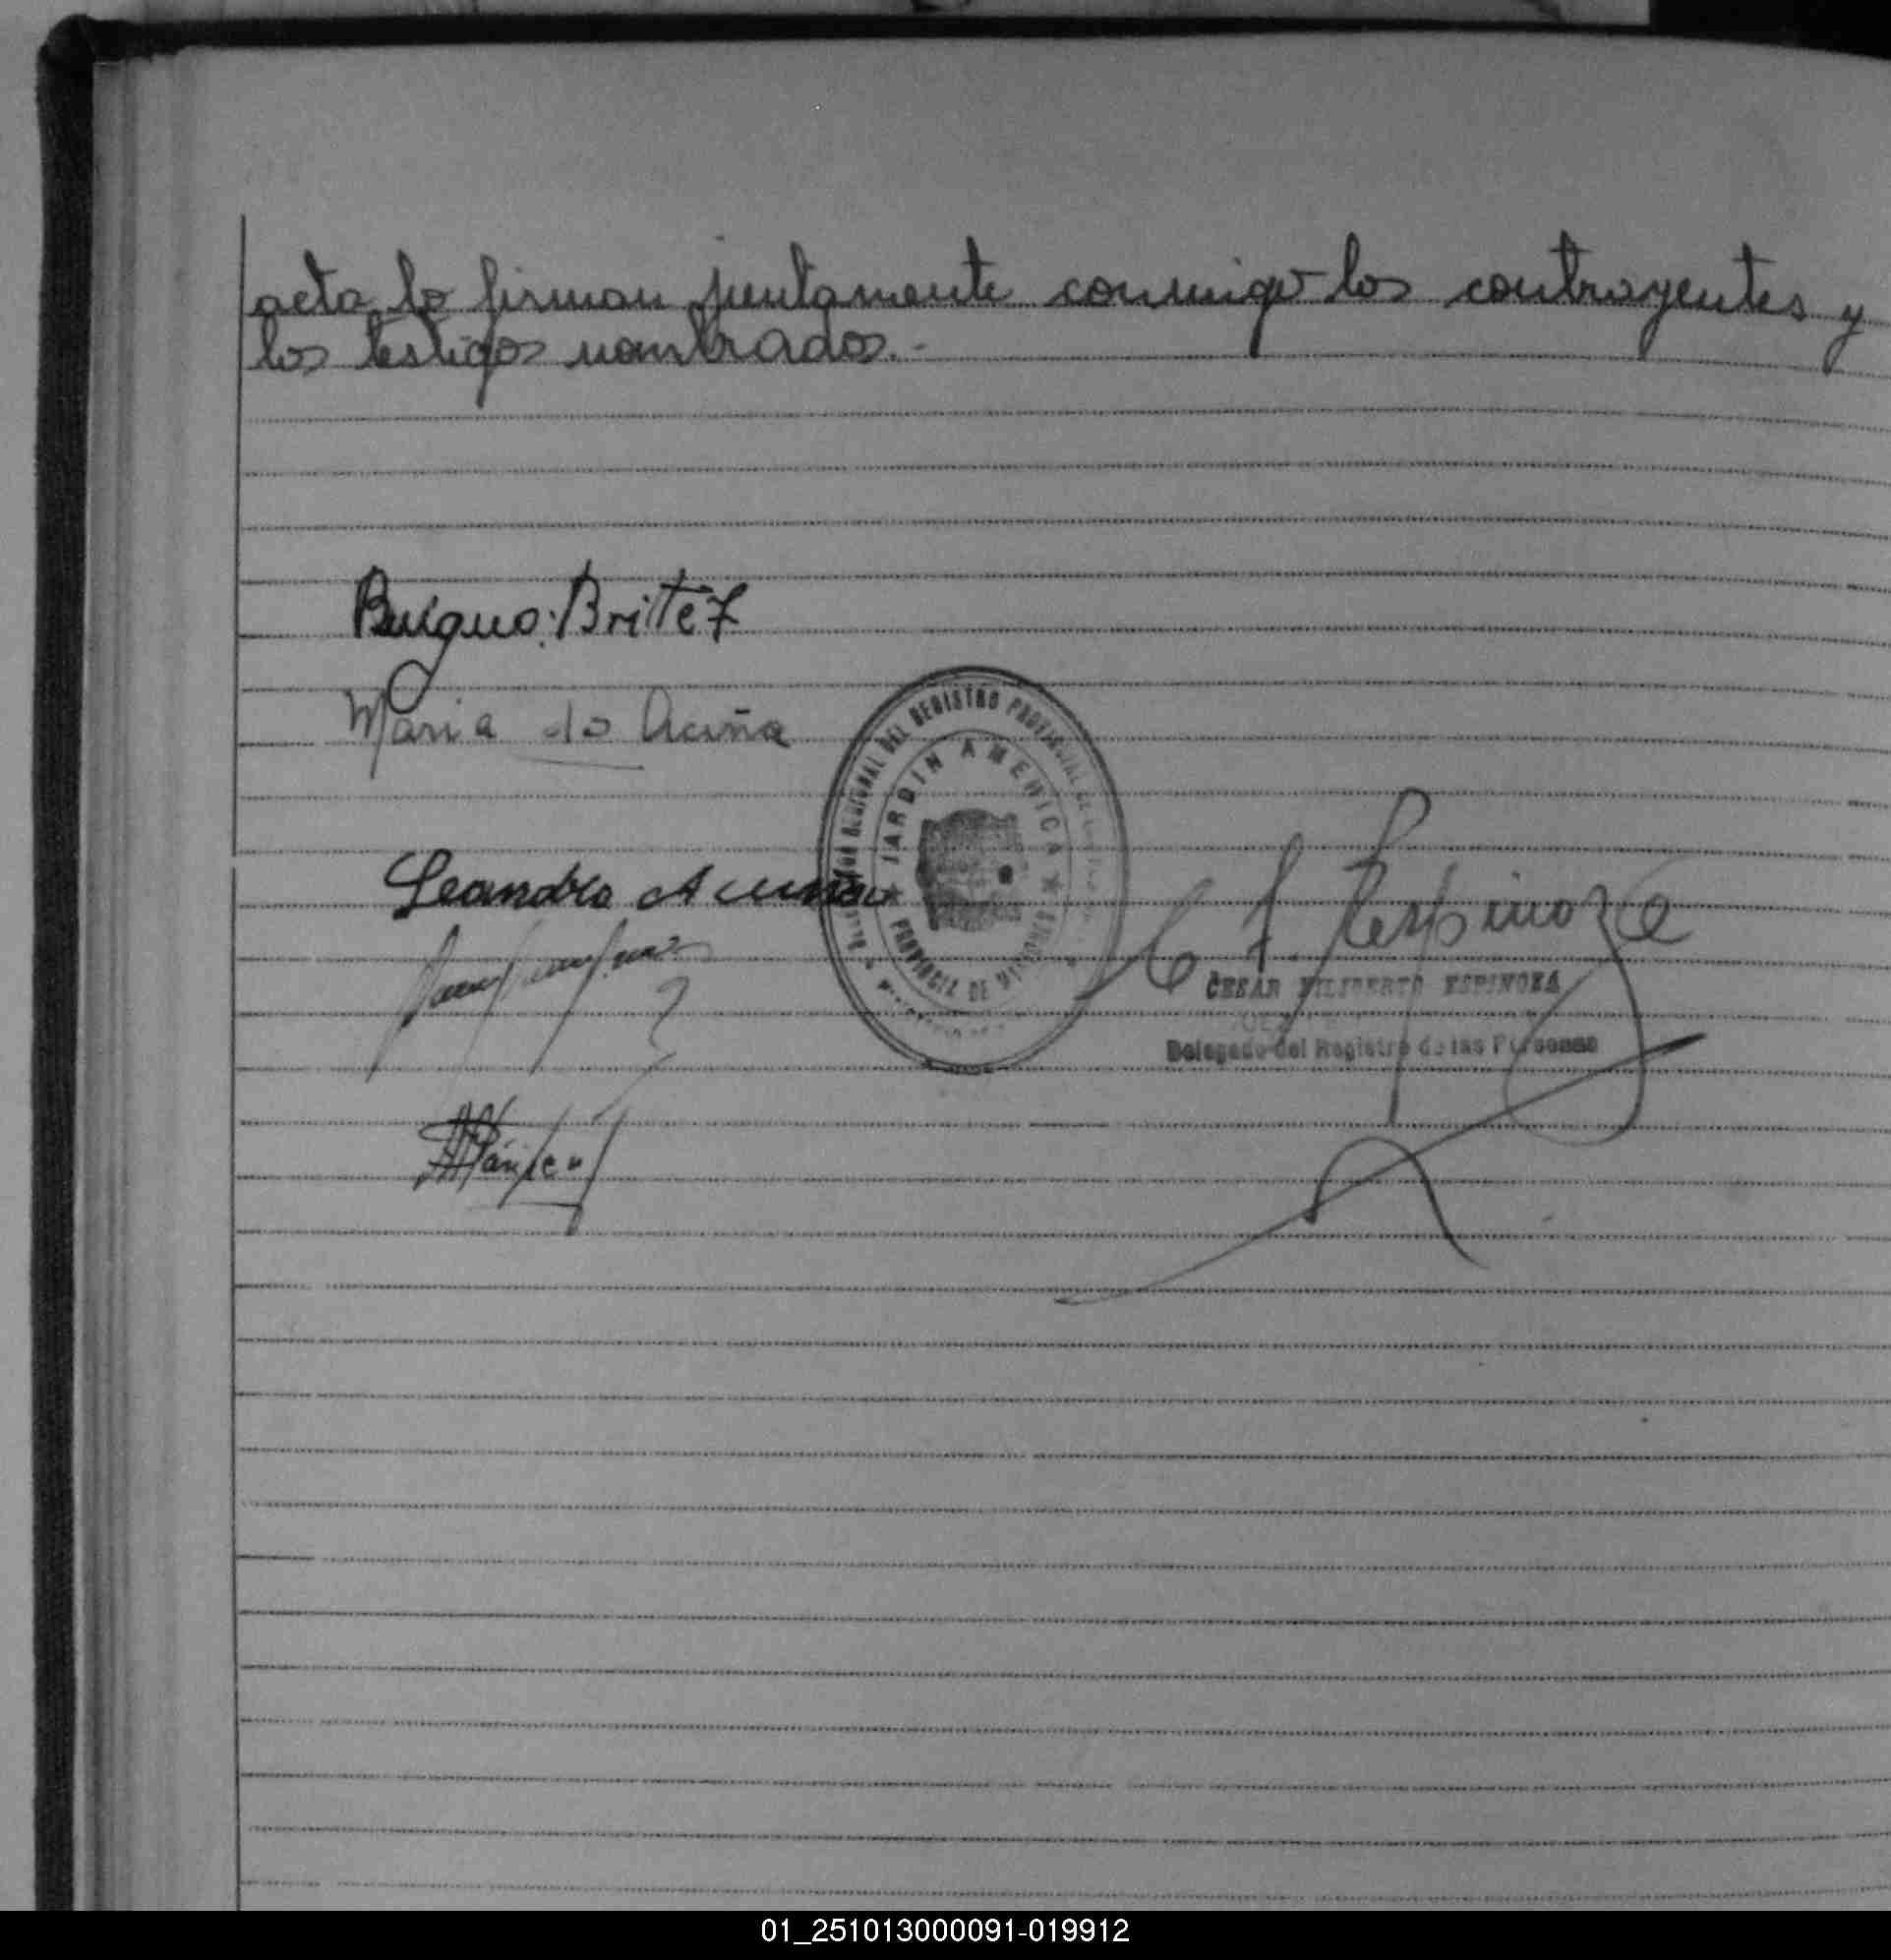 acta lo firman juntamente conmigo los contrayentes y
los testigos nombrados.-
Buigno Brittez
Maria do Acuña
REGISTRO PROVINCIAL DE LAS
JARDIN AMERICA
PROVINCIA DE MISIONES
Leandro Acuña
C F Espinoza
CESAR FILIBERTO ESPINOZA
Delegado del Registro de las Personas
01_251013000091-019912